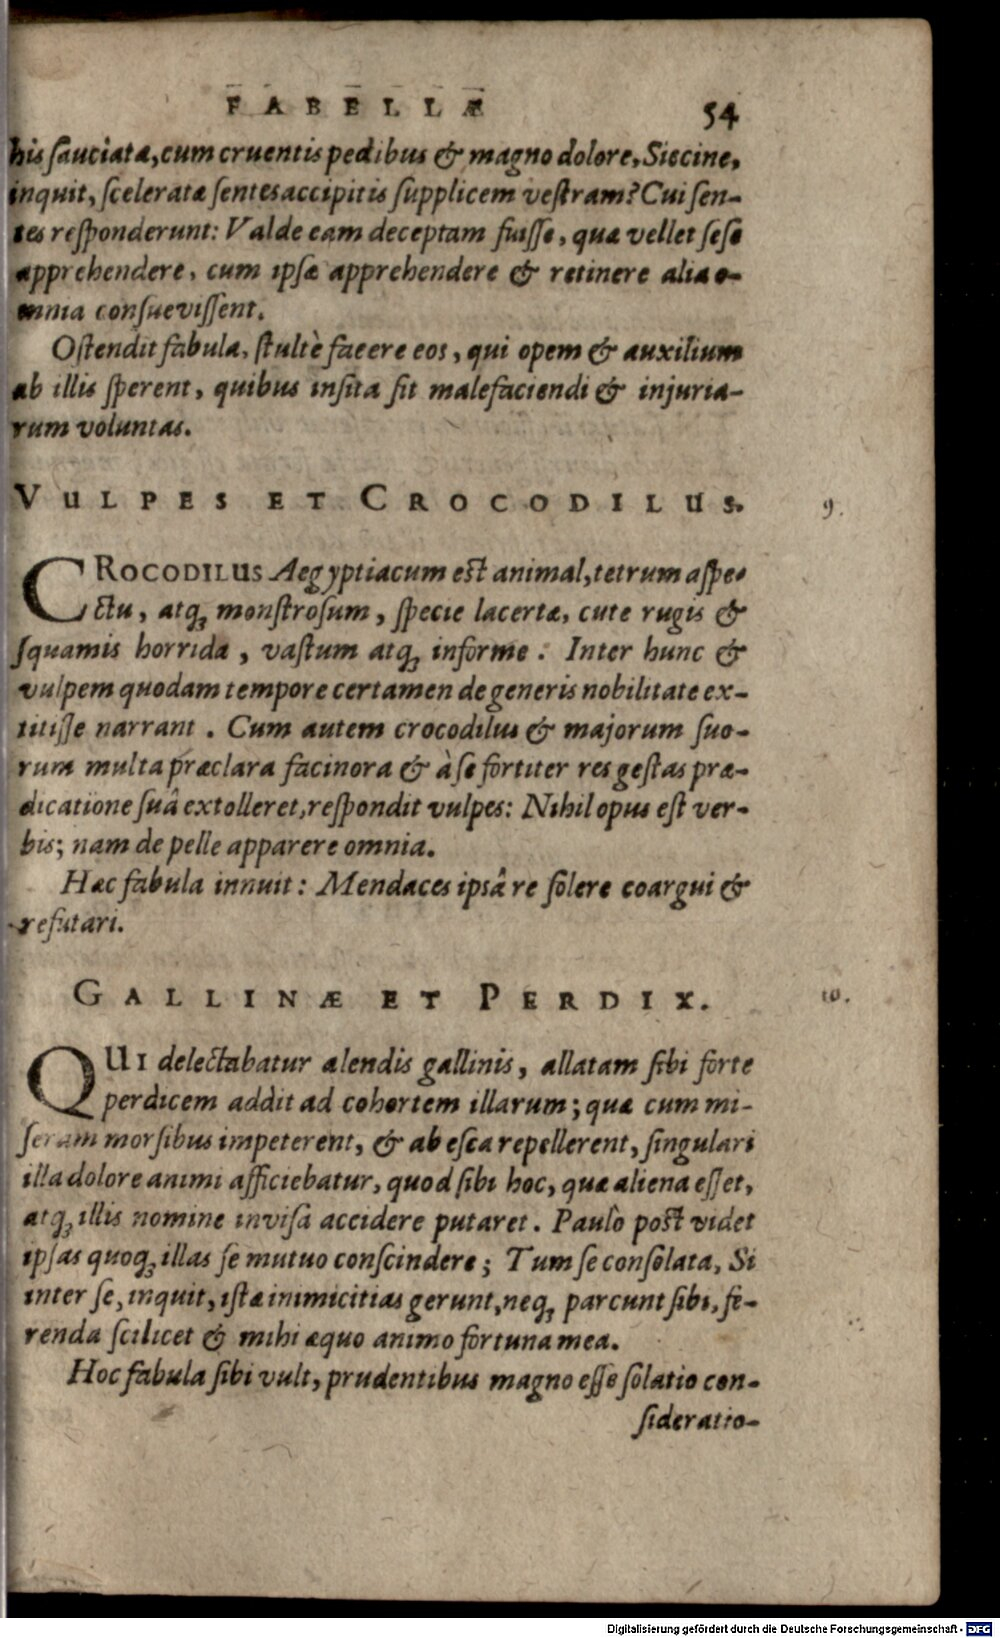 FABELLÆ 54
his sauciatæ, cum cruentis pedibus & magno dolore, Siccine,
inquit, sceleratæ sentes accipitis supplicem vestram? Cui sen-
tes responderunt: Valde eam deceptam fuisse, quæ vellet sese
apprehendere, cum ipsæ apprehendere & retinere alia o-
mnia consuevissent.
Ostendit fabula, stultè facere eos, qui opem & auxilium
ab illis sperent, quibus insita sit malefaciendi & injuria-
rum voluntas.
VULPES ET CROCODILUS. 9.
CROCODILUS Aegyptiacum est animal, tetrum aspe-
ctu, atq; monstrosum, specie lacertæ, cute rugis &
squamis horrida, vastum atq; informe. Inter hunc &
vulpem quodam tempore certamen de generis nobilitate ex-
titisse narrant. Cum autem crocodilus & majorum suo-
rum multa præclara facinora & à se fortiter res gestas præ-
dicatione suâ extolleret, respondit vulpes: Nihil opus est ver-
bis; nam de pelle apparere omnia.
Hæc fabula innuit: Mendaces ipsâ re solere coargui &
refutari.
GALLINÆ ET PERDIX. 10.
QUI delectabatur alendis gallinis, allatam sibi forte
perdicem addit ad cohortem illarum; quæ cum mi-
seram morsibus impeterent, & ab esca repellerent, singulari
illa dolore animi afficiebatur, quod sibi hoc, quæ aliena esset,
atq; illis nomine invisa accidere putaret. Paulò post videt
ipsas quoq; illas se mutuo conscindere; Tum se consolata, Si
inter se, inquit, istæ inimicitias gerunt, neq; parcunt sibi, fe-
renda scilicet & mihi æquo animo fortuna mea.
Hoc fabula sibi vult, prudentibus magno esse solatio con-
sideratio-
Digitalisierung gefördert durch die Deutsche Forschungsgemeinschaft - DFG